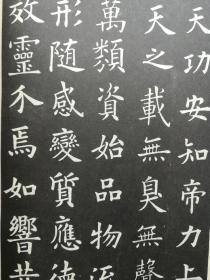 天功安知帝力上
天之載無臭無聲
萬類資始品物流
形隨感變質應德
效靈不焉如響共